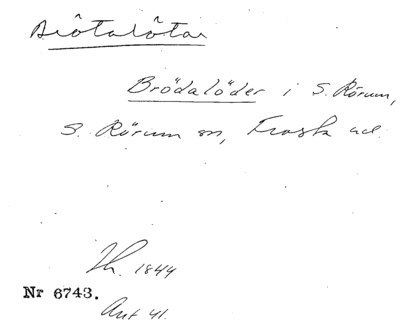 Brötalötar
Brödalöder i S. Rörum,
S. Rörum sn, Frosta hd.
Th. 1844
Nr 6743.
Ant 41.